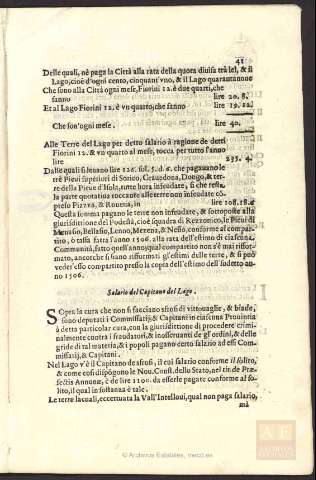 41
Delle quali, nè paga la Città alla rata della quota diuisa trà lei, & il
Lago, cioè d'ogni cento, cinquant'vno, & il Lago quarantanoue
Che sono alla Città ogni mese, Fiorini 12. è due quarti, che
fanno lire 20. 8.
Et al Lago Fiorini 12. è vn quarto, che fanno lire 19. 12.
Che son'ogni mese. lire 40.
Alle Terre del Lago per detto salario à ragione de detti
Fiorini 12. & vn quarto al mese, tocca per tutto l'anno
lire 235. 4.
Dalle quali si leuano lire 126. sol. 5. d. 6. che pagauano le
trè Pieui superiori di Sorico, Grauedona, Dongo, & ter-
re della Pieue d'Isola, tutte hora infeudate, si che resta,
la parte quotatiua toccante alle terre non infeudate có-
preso Piazza, & Rouenna, in lire 108. 18. 6
Questa somma pagano le terre non infeudate, & sottoposte alla
giurisdittione del Podestà, cioè Squadra di Rezzonico, le Pieui di
Menasio, Bellasio, Lenno, Nesso, conforme al compar-
tito, ò tassa fatta l'anno 1506. alla rata dell'estimo di ciascuna
Communità, fatto quest'anno, qual compartito non s'è mai rifor-
mato, ancorche si siano riformati gl'estimi delle terre, & si può
veder'esso compartito presso la copia dell'estimo dell'sudetto an-
no 1506.
Salario del Capitano del Lago.
SOpra la cura che non si facciano sfrosi di vittouaglie, & biade,
sono deputati i Commissarij, & Capitani in ciascuna Prouintia
à detta particolar cura, con la giurisdittione di procedere crimi-
nalmente contra i fraudatori, & inosseruanti de gl'ordini, & delle
gride di tal materia, & i popoli pagano certo salario ad essi Com-
missarij, & Capitani.
Nel Lago v'è il Capitano de sfrosi, il cui salario conforme il solito,
& come così dispongo le Nou. Const. dello Stato, nel tit. de Præ-
fectis Annonæ, è de lire 1100. da esserle pagate conforme al so-
lito, il qual in sostanza è tale.
Le terre lacuali, eccettuata la Vall'Intelloui, qual non paga salario,
mà
© Archivos Estatales, mecd.es